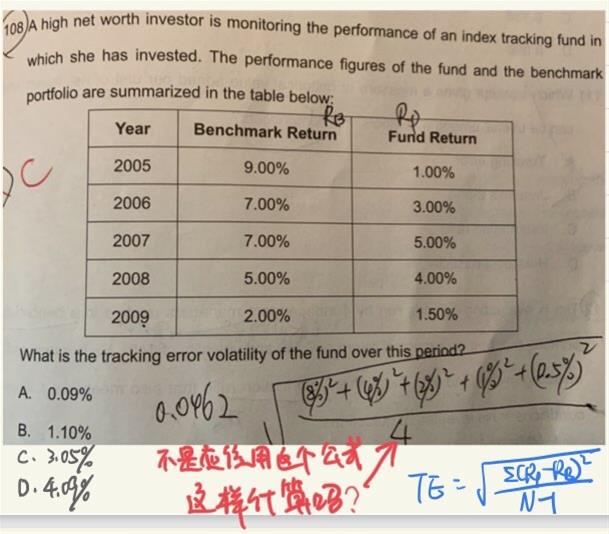 108 A high net worth investor is monitoring the performance of an index tracking fund in
which she has invested. The performance figures of the fund and the benchmark
portfolio are summarized in the table below:
RB Rp
Year Benchmark Return Fund Return
C
2005 9.00% 1.00%
2006 7.00% 3.00%
2007 7.00% 5.00%
2008 5.00% 4.00%
2009 2.00% 1.50%
What is the tracking error volatility of the fund over this period?
A. 0.09%
0.0462 √((8%)² + (4%)² + (2%)² + (1%)² + (0.5%)² / 4)
B. 1.10%
C. 3.05%
D. 4.09%
不是应该用这个公式
这样计算吗?
TE = √(Σ(Rp-RB)² / N-1)